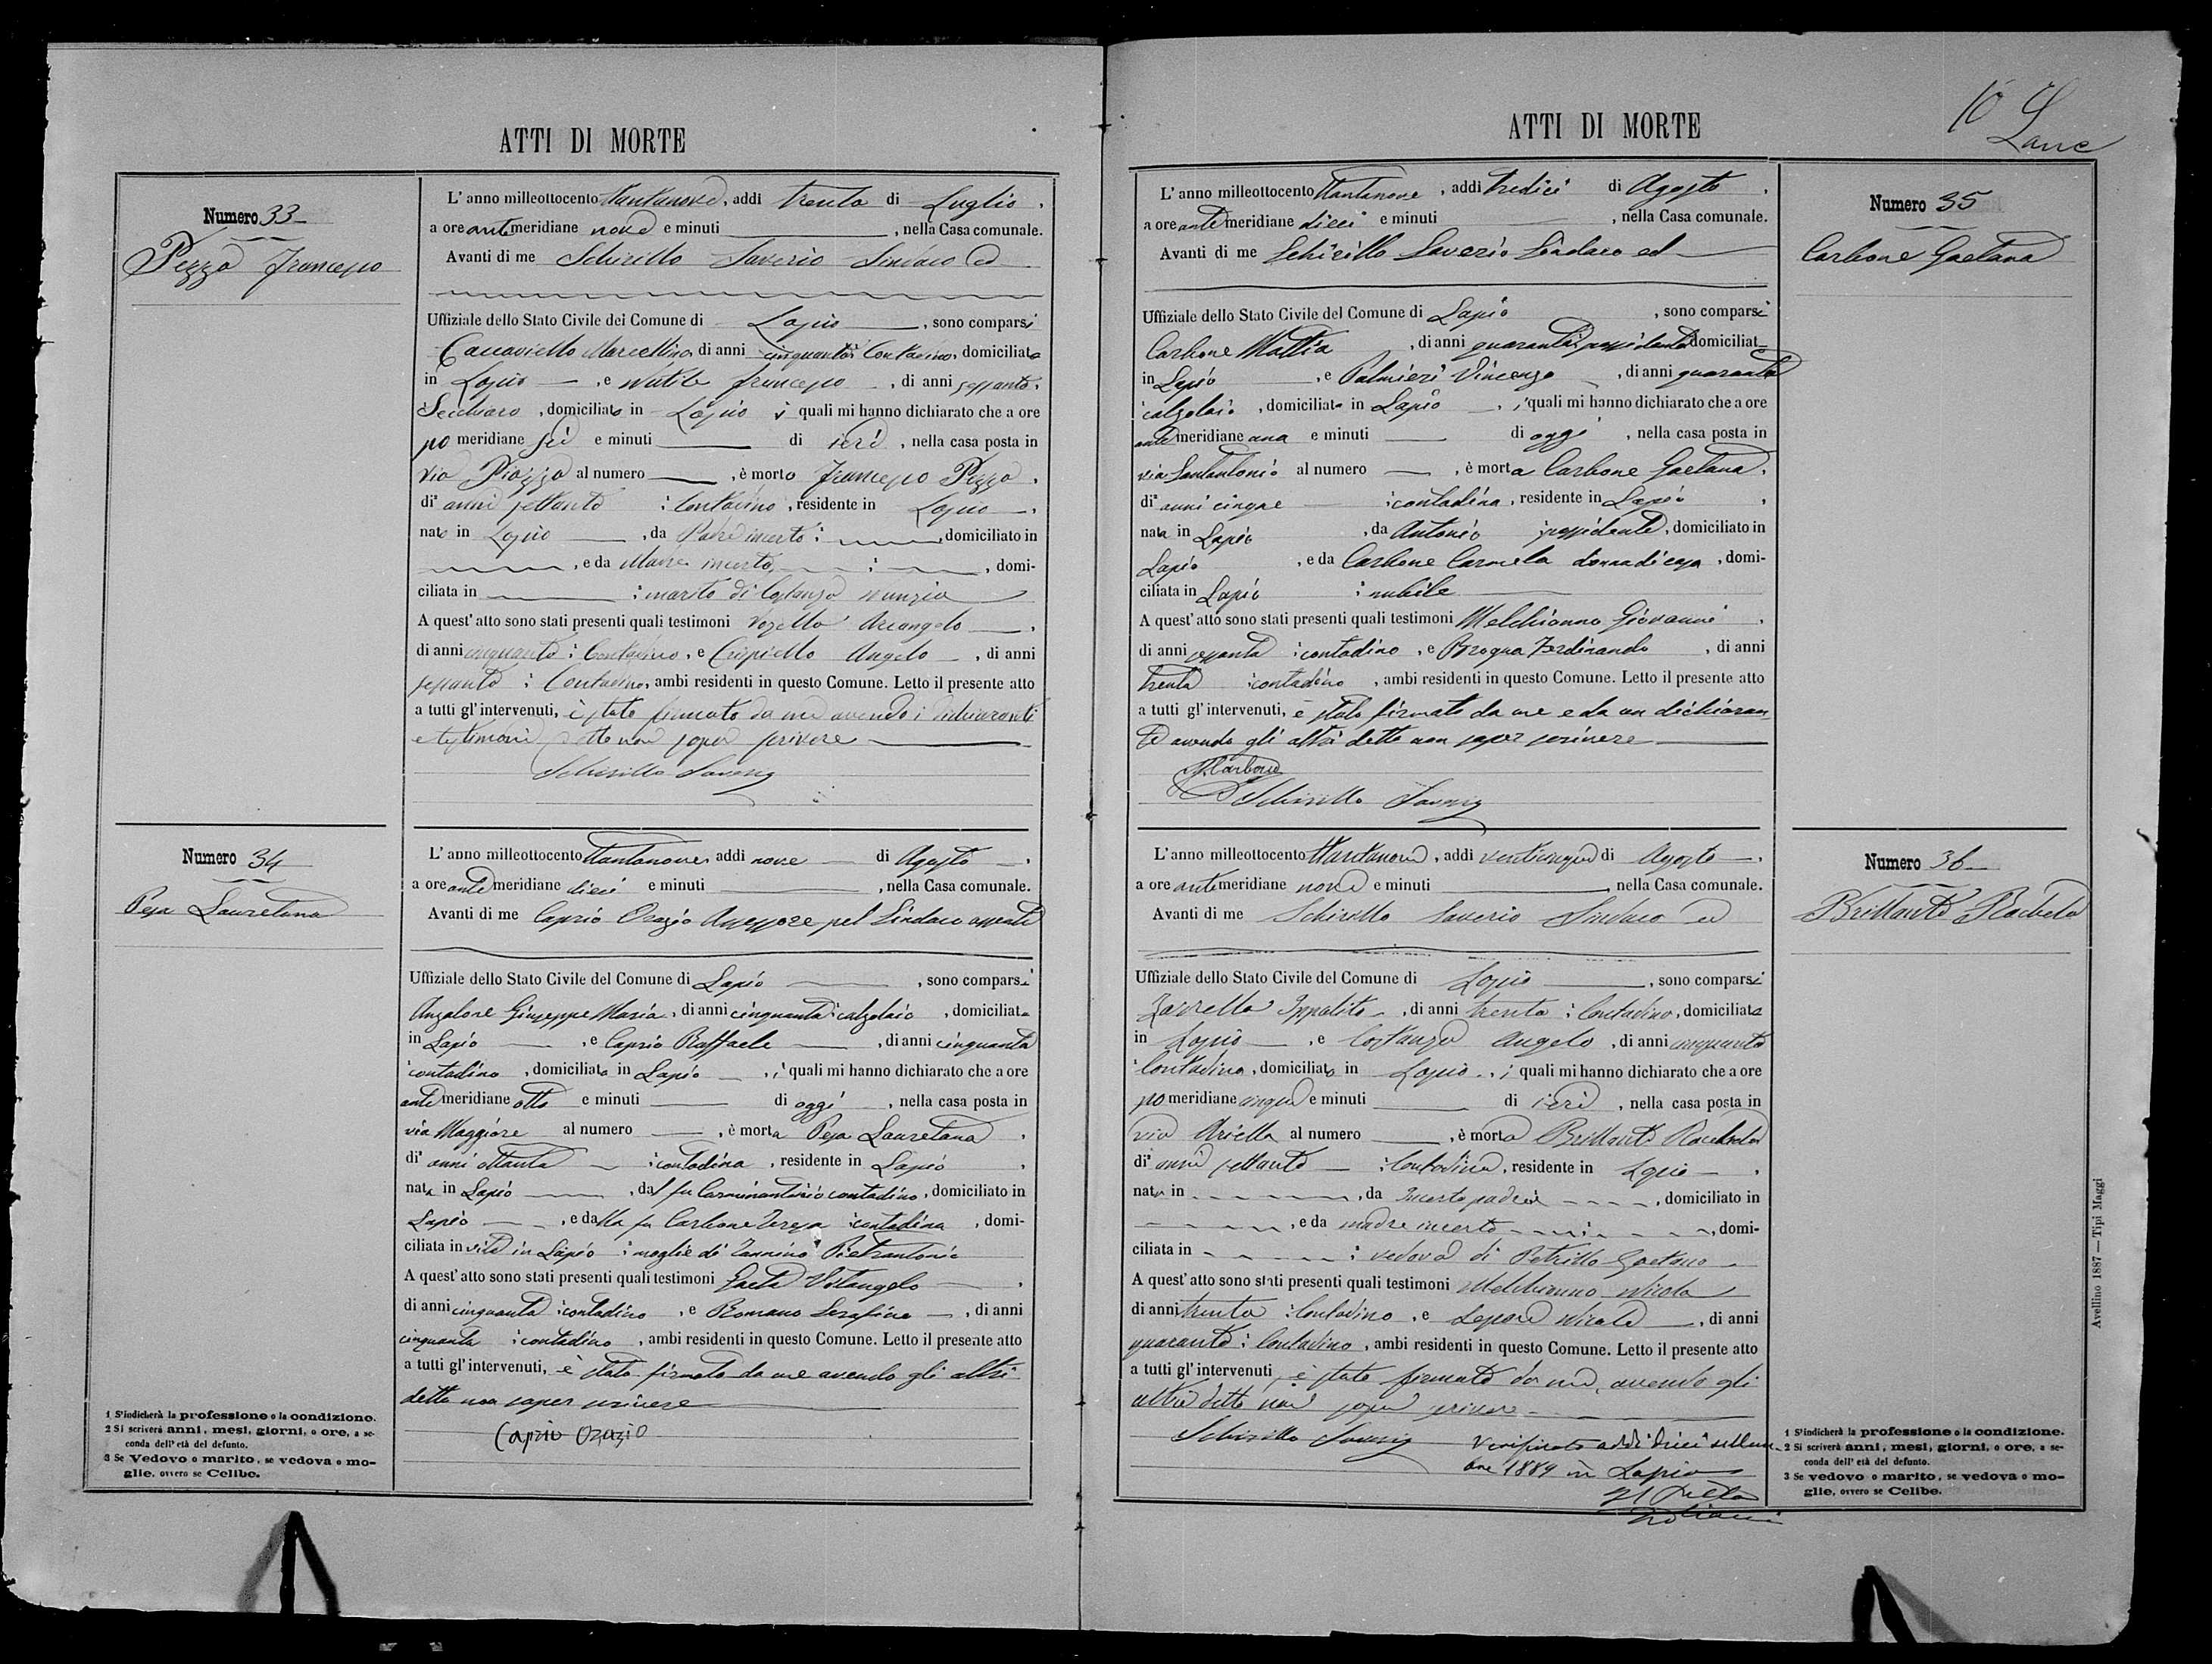 ATTI DI MORTE
Numero 33
Pezza Francesco
L'anno milleottocento ottantanove, addi trenta di Luglio,
a ore antimeridiane nove e minuti , nella Casa comunale.
Avanti di me Schirillo Saverio Sindaco ed
Uffiziale dello Stato Civile del Comune di Lapio , sono comparsi
Caccaviello Marcellino, di anni cinquanta: Contadino, domiciliato
in Lapio , e Nutile Francesco , di anni sessanta,
, domiciliato in Lapio i quali mi hanno dichiarato che a ore
pomeridiane sei e minuti di ieri , nella casa posta in
via Piazza al numero , è morto Francesco Pezza ,
di anni settanta : Contadino, residente in Lapio ,
nato in Lapio , da Padre incerto : , domiciliato in
, e da Madre incerta, : , domi-
ciliata in : marito di Costanza Nunzia
A quest'atto sono stati presenti quali testimoni Arcangelo ,
di anni cinquanta : Contadino, e Crispiello Angelo , di anni
sessanta : Contadino, ambi residenti in questo Comune. Letto il presente atto
a tutti gl'intervenuti, è stato firmato da me avendo i dichiaranti
e testimoni detto non saper scrivere
Schirillo Saverio
Numero 34
Pesa Lauretana
L'anno milleottocento ottantanove, addi nove di Agosto ,
a ore antimeridiane dieci e minuti , nella Casa comunale.
Avanti di me Caprio Orazio Assessore pel Sindaco assente
Uffiziale dello Stato Civile del Comune di Lapio , sono comparsi
Anzalone Giuseppe Maria, di anni cinquanta: calzolaio , domiciliato
in Lapio , e Caprio Raffaele , di anni cinquanta
: contadino , domiciliato in Lapio , i quali mi hanno dichiarato che a ore
antimeridiane otto e minuti di oggi , nella casa posta in
via Maggiore al numero , è morta Pesa Lauretana ,
di anni ottanta : contadina , residente in Lapio ,
nata in Lapio , dal fu Carminantonio contadino, domiciliato in
Lapio , e dalla fu Carbone Teresa : contadina , domi-
ciliata in vita in Lapio : moglie di Iannino Pietrantonio
A quest'atto sono stati presenti quali testimoni Gaeta Vitangelo ,
di anni cinquanta : contadino , e Romano Serafino , di anni
cinquanta : contadino , ambi residenti in questo Comune. Letto il presente atto
a tutti gl'intervenuti, è stato firmato da me avendo gli altri
detto non saper scrivere
Caprio Orazio
1 S'indicherà la professione o la condizione.
2 Si scriverà anni, mesi, giorni, o ore, a se-
conda dell'età del defunto.
3 Se vedovo o marito, se vedova o mo-
glie, ovvero se Celibe.
10
ATTI DI MORTE
Numero 35
Carbone Gaetana
L'anno milleottocento ottantanove , addi tredici di Agosto ,
a ore antimeridiane dieci e minuti , nella Casa comunale.
Avanti di me Schirillo Saverio Sindaco ed
Uffiziale dello Stato Civile del Comune di Lapio , sono comparsi
Carbone Mattia , di anni quaranta: possidente domiciliato
in Lapio , e Palmieri Vincenzo , di anni quaranta
: calzolaio , domiciliato in Lapio , i quali mi hanno dichiarato che a ore
antimeridiane una e minuti di oggi , nella casa posta in
via Santantonio al numero , è morta Carbone Gaetana ,
di anni cinque : contadina , residente in Lapio ,
nata in Lapio , da Antonio : possidente , domiciliato in
Lapio , e da Carbone Carmela donna di casa , domi-
ciliata in Lapio : nubile
A quest'atto sono stati presenti quali testimoni Melchionno Giovanni ,
di anni sessanta : contadino , e Brogna Ferdinando , di anni
trenta : contadino , ambi residenti in questo Comune. Letto il presente atto
a tutti gl'intervenuti, è stato firmato da me e da un dichiaran
te avendo gli altri detto non saper scrivere
M. Carbone
Schirillo Saverio
Numero 36
Brillante Rachela
L'anno milleottocento ottantanove , addi venticinque di Agosto ,
a ore antimeridiane nove e minuti , nella Casa comunale.
Avanti di me Schirillo Saverio Sindaco ed
Uffiziale dello Stato Civile del Comune di Lapio , sono comparsi
Zarrella Ippolito , di anni trenta : Contadino, domiciliato
in Lapio , e Costanza Angelo , di anni cinquanta
: Contadino, domiciliato in Lapio , i quali mi hanno dichiarato che a ore
pomeridiane cinque e minuti di ieri , nella casa posta in
via Ariella al numero , è morta Brillante Rachela
di anni settanta : Contadina, residente in Lapio ,
nata in , da Incerto padre , domiciliato in
, e da madre incerta , domi-
ciliata in : vedova di Petrillo Gaetano
A quest'atto sono stati presenti quali testimoni Melchionno Nicola
di anni trenta : Contadino , e Lepore Nicola , di anni
quaranta : Contadino , ambi residenti in questo Comune. Letto il presente atto
a tutti gl'intervenuti, è stato firmato da me, avendo gli
altri detto non saper scrivere
Schirillo Saverio
Verificato addi dieci settem-
bre 1889 in Lapio
Il
1 S'indicherà la professione o la condizione.
2 Si scriverà anni, mesi, giorni, o ore, a se-
conda dell'età del defunto.
3 Se vedovo o marito, se vedova o mo-
glie, ovvero se Celibe.
Avellino 1887 — Tipi Maggi